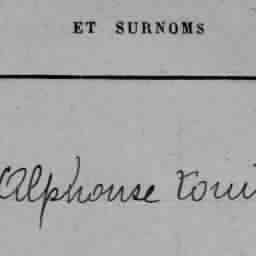 ET SURNOMS
Alphonse Loui